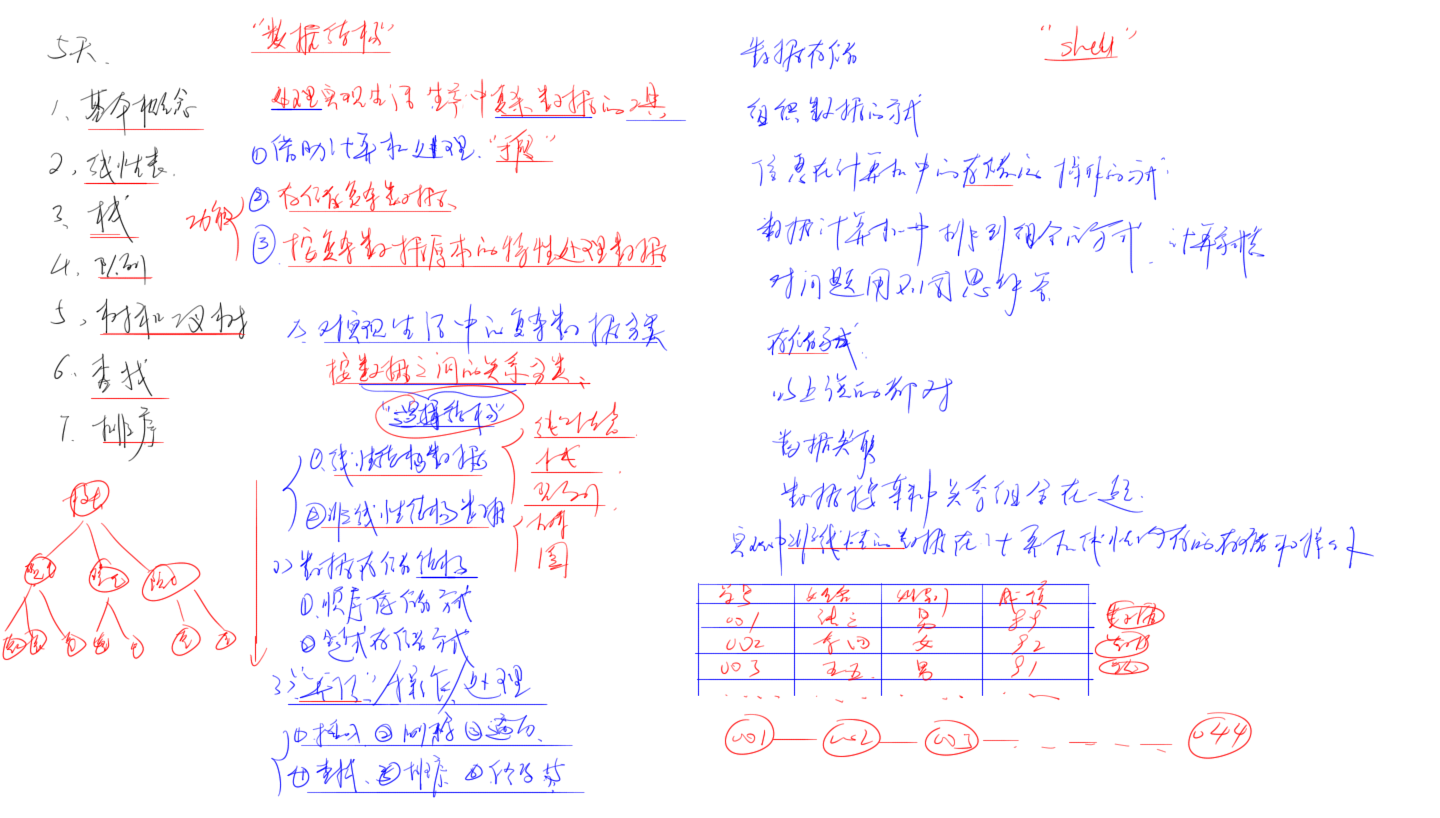 5天.
1、基本概念
2、线性表.
3、栈
4、队列
5、树和二叉树
6、查找
7、排序
"数据结构"
处理实现生活生产中复杂数据的工具.
①借助计算机处理."手段"
功能
②存储复杂数据、
③按复杂数据原本的特性处理数据
1、对实现生活中的复杂数据分类
按数据之间的关系分类、
"逻辑结构"
①.线性结构数据
②非线性结构数据
线性表
栈
队列
树
图
2、数据存储结构
①.顺序存储方式
②链式存储方式
3、"算法"/操作/处理
①插入 ②删除 ③遍历、
④查找、⑤排序 ⑥修改等
"shell"
数据存储
组织数据的方式
信息在计算机中的存储及操作的方式
数据计算机中排列组合的方式、计算
对问题用不同思维
存储方式.
以上说的都对
数据关联
数据按某种关系组合在一起.
现实中非线性的数据在计算机线性内存的存储和
学号 姓名 性别 成绩
001 张三 男 89
002 李四 女 92
003 王五 男 91
001 002 003 044